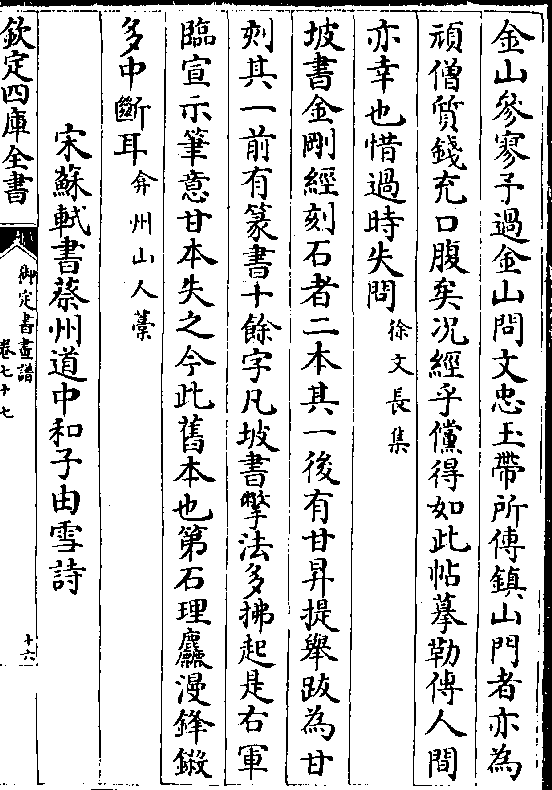 金山參寥子過金山問文忠玉帶所傳鎮山門者亦為
頑僧質錢充口腹矣况經乎儻得如此帖摹勒傳人間
亦幸也惜過時失問徐文長集
坡書金剛經刻石者二本其一後有甘昇提舉跋為甘
刻其一前有篆書十餘字凡坡書擊法多拂起是右軍
臨宣示筆意甘本失之今此舊本也第石理麤漫鋒鎩
多中斷耳弇州山人藁
宋蘇軾書蔡州道中和子由雪詩
欽定四庫全書
御定書畫譜
卷七十七
十六